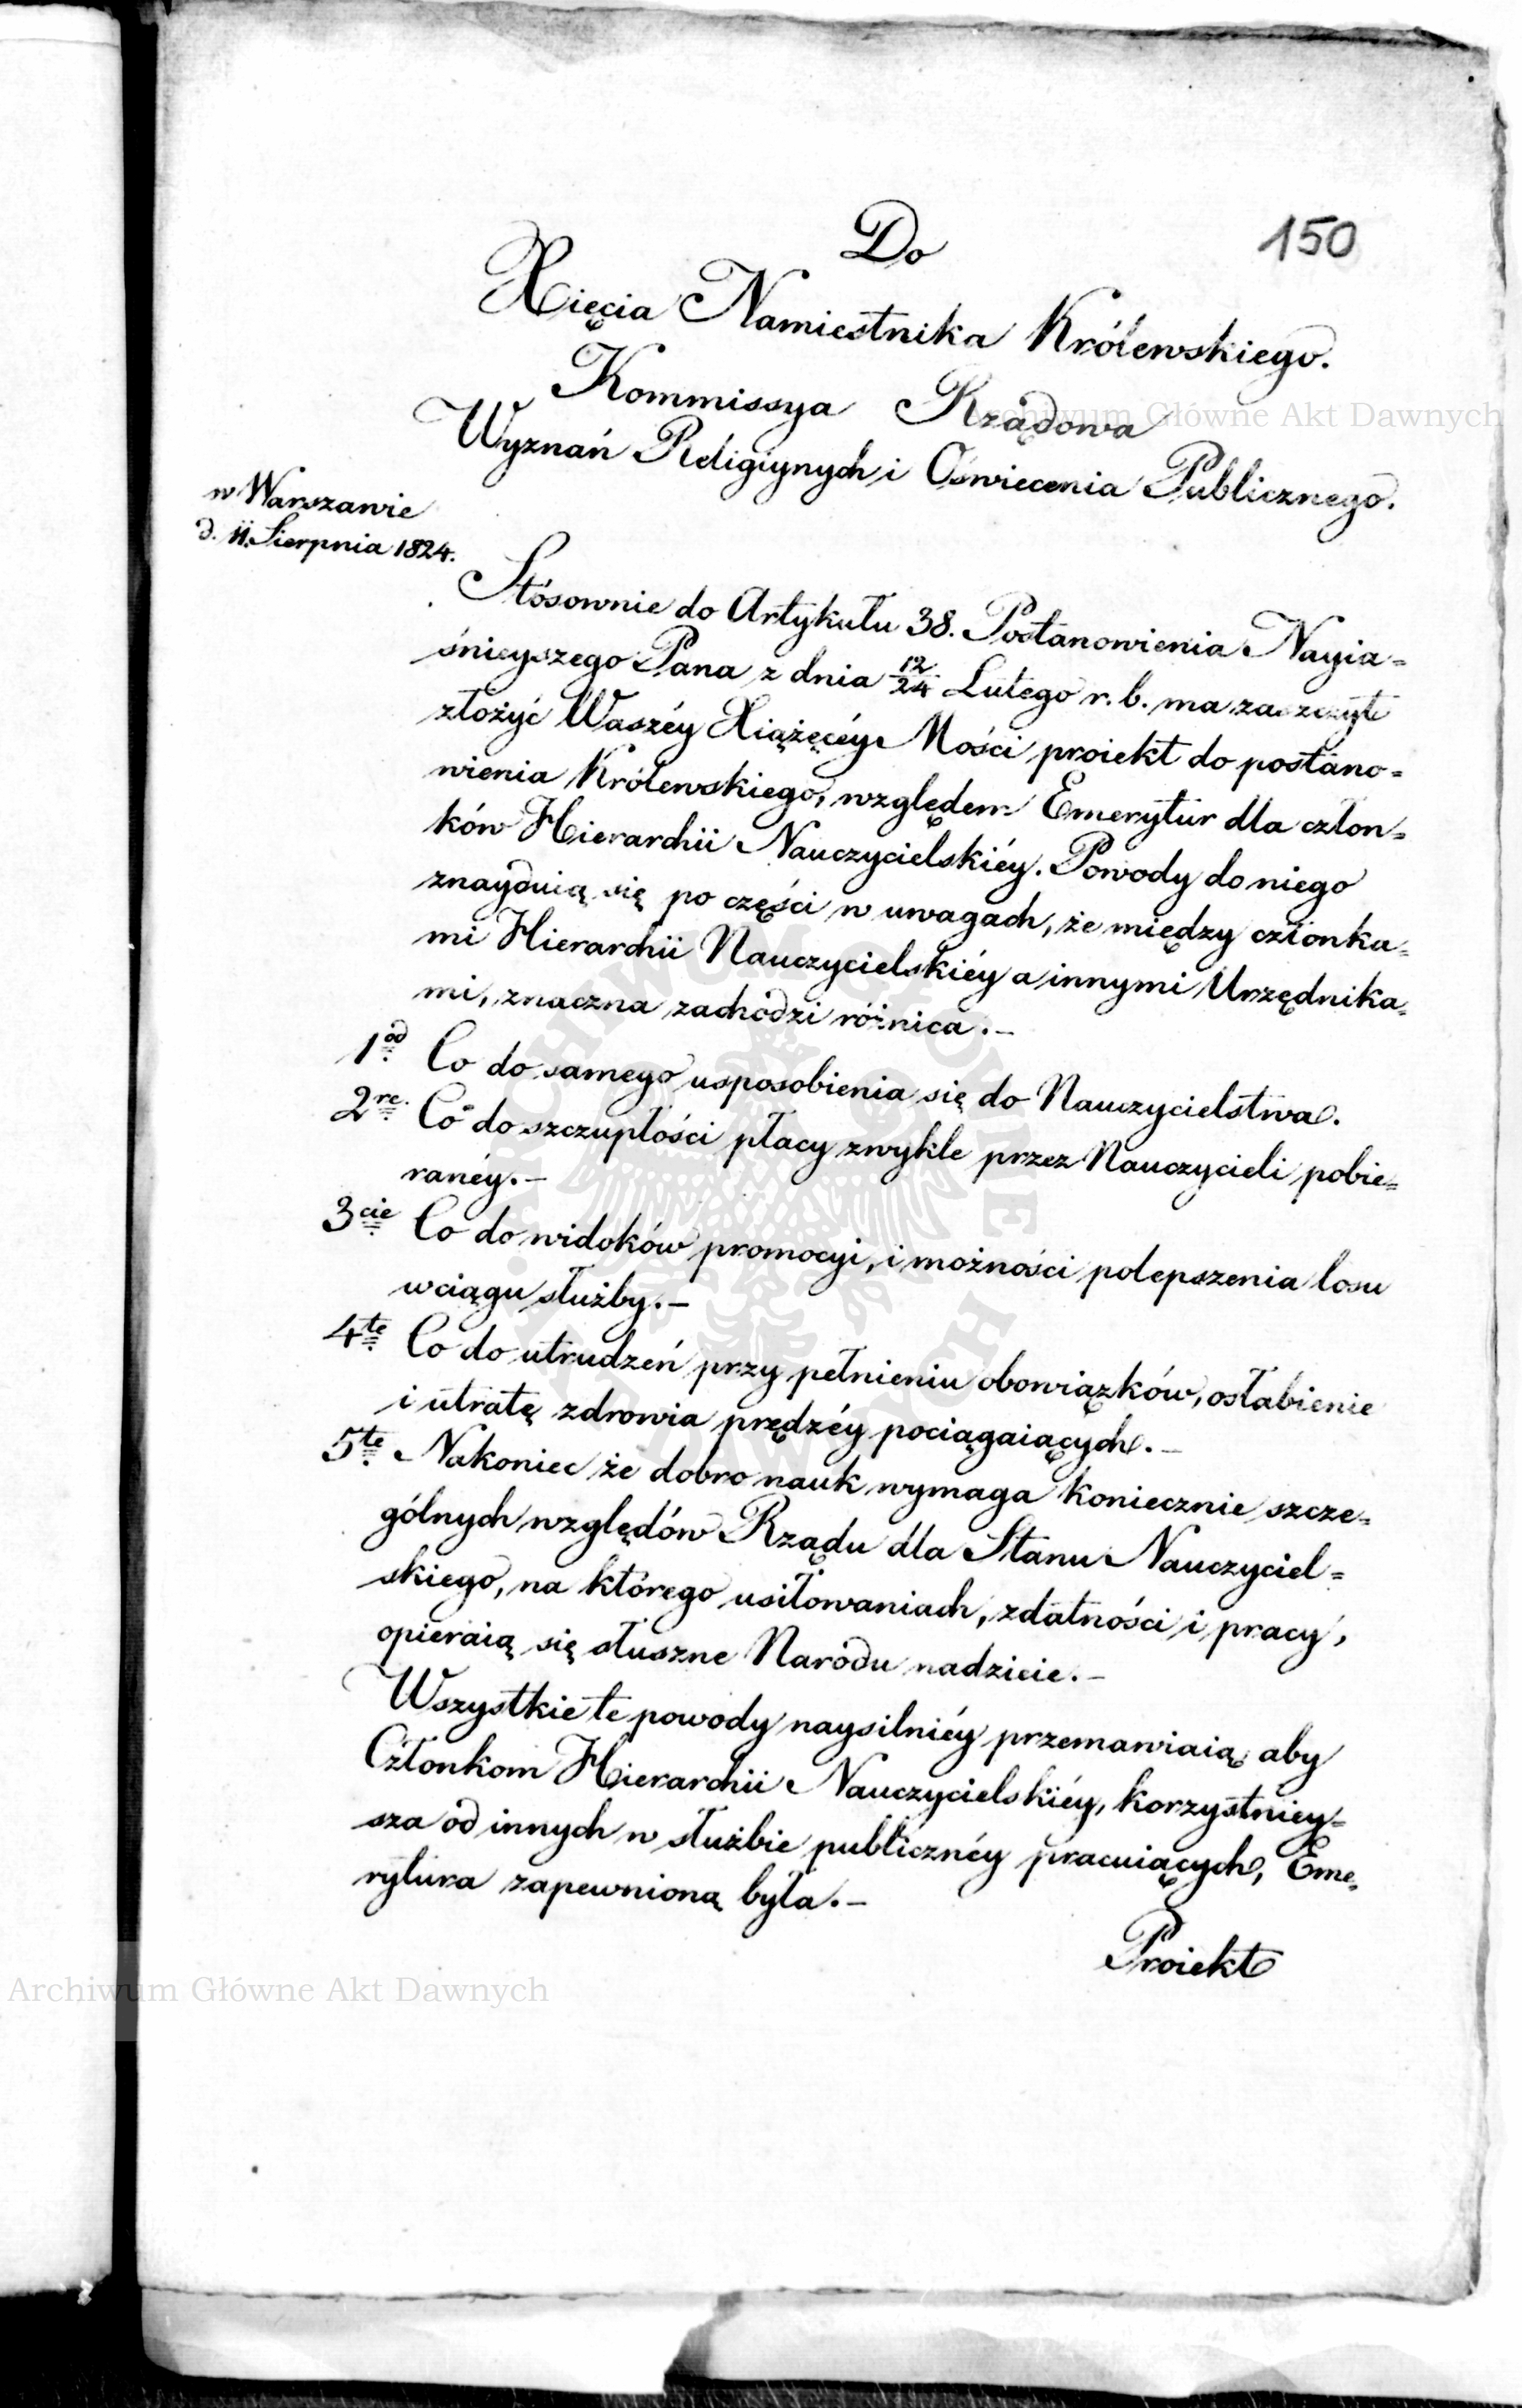 150
Do
Xięcia Namiestnika Królewskiego.
Kommissya Rządowa
Wyznań Religiynych i Oświecenia Publicznego.
w Warszawie
d. 11. Sierpnia 1824.
Stósownie do Artykułu 38. Postanowienia Nayia=
śnieyszego Pana z dnia 12/24 Lutego r. b. ma zaszczyt
złożyć Waszéy Xiążęcéy Mości proiekt do postano=
wienia Królewskiego, względem Emerytur dla człon=
ków Hierarchii Nauczycielskiéy. Powody do niego
znayduią się po części w uwagach, że między członka=
mi Hierarchii Nauczycielskiéy a innymi Urzędnika=
mi, znaczna zachodzi różnica.–
1od Co do samego usposobienia się do Nauczycielstwa.
2re. Co do szczupłości płacy zwykle przez Nauczycieli pobie=
ranéy.–
3cie Co do widoków promocyi, i możności polepszenia losu
w ciągu służby.–
4te Co do utrudzeń przy pełnieniu obowiązków, osłabienie
i utratę zdrowia prędzéy pociągaiących.–
5te Nakoniec że dobro nauk wymaga koniecznie szcze=
gólnych względów Rządu dla Stanu Nauczyciel=
skiego, na którego usiłowaniach, zdatności i pracy,
opieraią się słuszne Narodu nadzieie.–
Wszystkie te powody naysilniéy przemawiaią aby
Członkom Hierarchii Nauczycielskiéy, korzystniey=
sza od innych w służbie publicznéy pracuiących, Eme=
rytura zapewnioną była.–
Proiekt
Archiwum Główne Akt Dawnych
Archiwum Główne Akt Dawnych